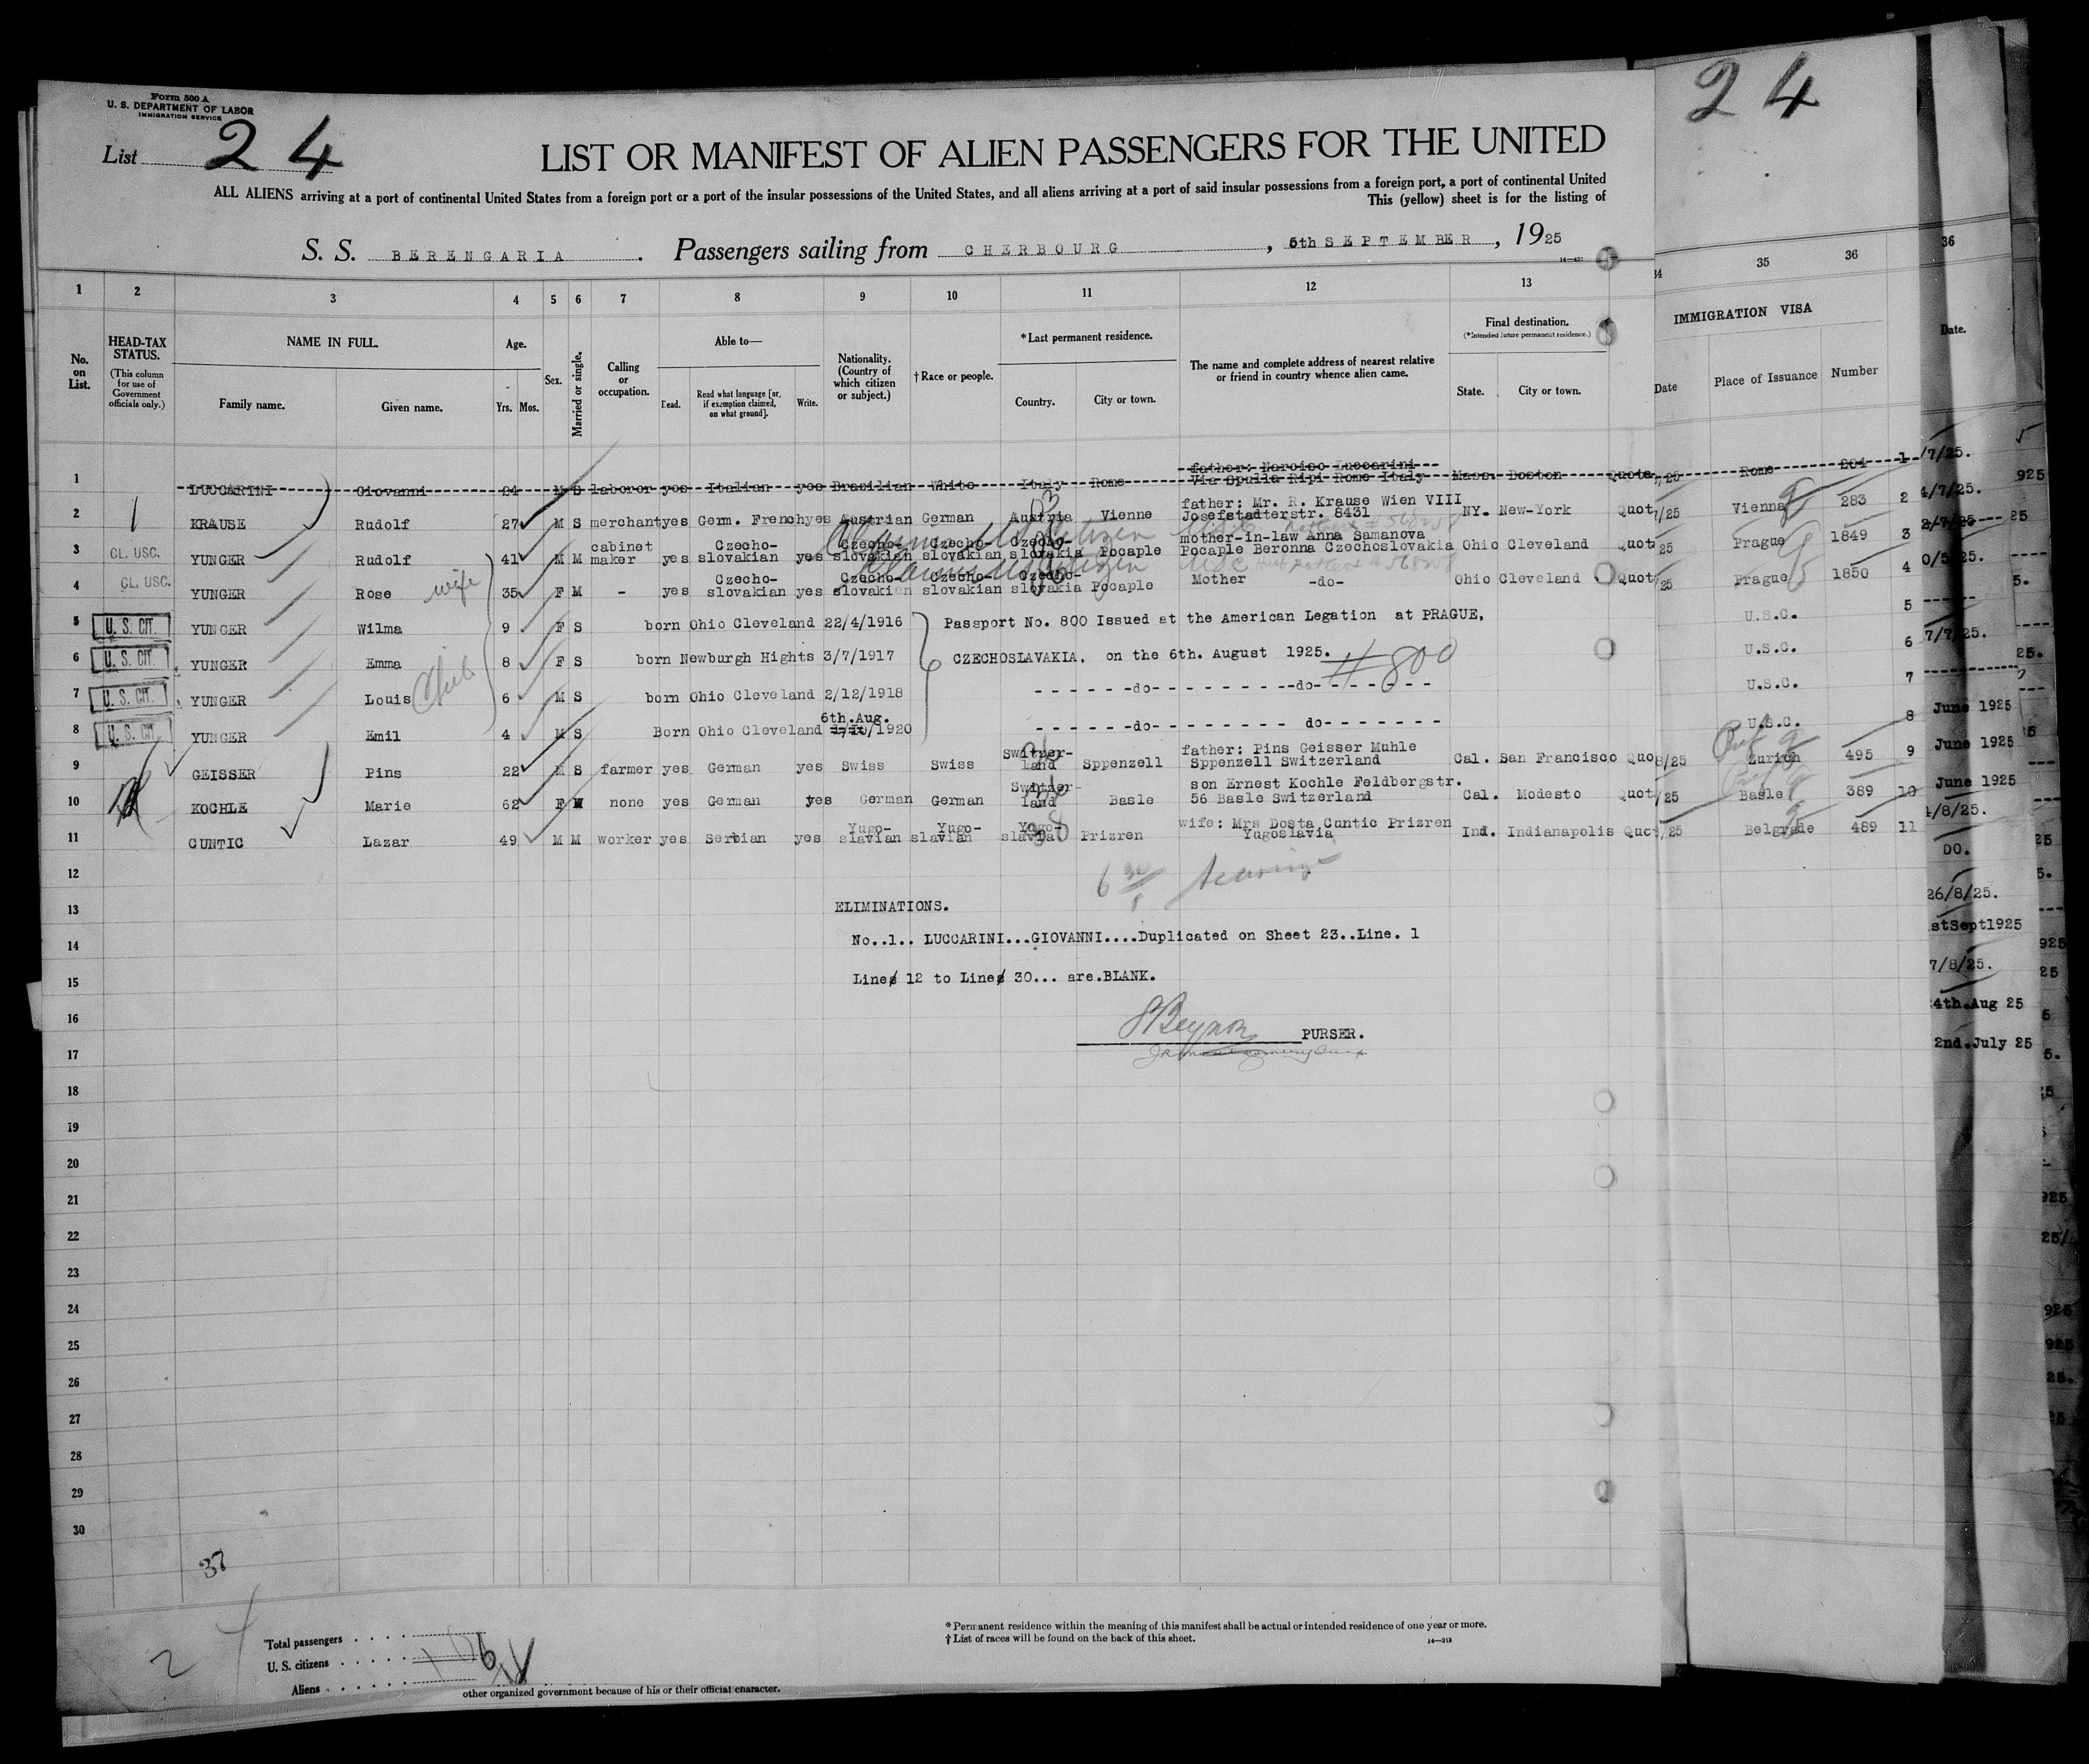 Form 500 A
U. S. DEPARTMENT OF LABOR
IMMIGRATION SERVICE
List 24
LIST OR MANIFEST OF ALIEN PASSENGERS FOR THE UNITED
ALL ALIENS arriving at a port of continental United States from a foreign port or a port of the insular possessions of the United States, and all aliens arriving at a port of said insular possessions from a foreign port, a port of continental United
This (yellow) sheet is for the listing of
S. S. BERENGARIA. Passengers sailing from CHERBOURG, 5th SEPTEMBER, 1925
1 2 3 4 5 6 7 8 9 10 11 12 13
No. on List.
HEAD-TAX STATUS.
(This column for use of Government officials only.)
NAME IN FULL.
Family name. Given name.
Age.
Yrs. Mos.
Sex.
Married or single.
Calling or occupation.
Able to—
Read. Read what language [or, if exemption claimed, on what ground]. Write.
Nationality. (Country of which citizen or subject.)
† Race or people.
* Last permanent residence.
Country. City or town.
The name and complete address of nearest relative or friend in country whence alien came.
Final destination.
(*Intended future permanent residence.)
State. City or town.
father: Narciso Luccarini
1 LUCCARINI Giovanni 24 M S laborer yes Italian yes Brazilian White Italy Rome Via Spulla Ripi Rome Italy Mass. Boston Quota
father: Mr. R. Krause Wien VIII
2 KRAUSE Rudolf 27 M S merchant yes Germ. French yes Austrian German Austria Vienne Josefstadterstr. 8431 NY. New-York Quot
Claims US Citizen
3 CL. USC. YUNGER Rudolf 41 M M cabinet maker yes Czecho-slovakian yes Czecho-slovakian Czecho-slovakian Czecho-slovakia Pocaple mother-in-law Anna Samanova
Pocaple Beronna Czechoslovakia Ohio Cleveland Quot
Claims US Citizen
4 CL. USC. YUNGER Rose wife 35 F M - yes Czecho-slovakian yes Czecho-slovakian Czecho-slovakian Czecho-slovakia Pocaple Mother -do- Ohio Cleveland Quot
5 U. S. CIT. YUNGER Wilma 9 F S born Ohio Cleveland 22/4/1916 Passport No. 800 Issued at the American Legation at PRAGUE,
6 U. S. CIT. YUNGER Emma 8 F S born Newburgh Hights 3/7/1917 CZECHOSLAVAKIA, on the 6th. August 1925.
# 800
7 U. S. CIT. YUNGER Louis 6 M S born Ohio Cleveland 2/12/1918 - - - - - -do- - - - - - - - --do- - - - - - -
6th.Aug.
8 U. S. CIT. YUNGER Emil 4 M S Born Ohio Cleveland 1/10/1920 - - - - - -do- - - - - - - - do- - - - - - -
9 GEISSER Pins 22 M S farmer yes German yes Swiss Swiss Switzer-land Sppenzell father: Pins Geisser Muhle
Sppenzell Switzerland Cal. San Francisco Quo
10 KOCHLE Marie 62 F W none yes German yes German German Switzer-land Basle son Ernest Kochle Feldbergstr.
56 Basle Switzerland Cal. Modesto Quot
11 CUNTIC Lazar 49 M M worker yes Serbian yes Yugo-slavian Yugo-slavian Yugo-slavia Prizren wife: Mrs Dosta Cuntic Prizren
Yugoslavia Ind. Indianapolis Quot
12
13 ELIMINATIONS.
14 No..1.. LUCCARINI...GIOVANNI....Duplicated on Sheet 23..Line. 1
15 Lines 12 to Lines 30... are.BLANK.
16
PURSER.
17
18
19
20
21
22
23
24
25
26
27
28
29
30
37
2 4
Total passengers
U. S. citizens
Aliens
* Permanent residence within the meaning of this manifest shall be actual or intended residence of one year or more.
† List of races will be found on the back of this sheet.
14—213
other organized government because of his or their official character.
24
34 35 36
IMMIGRATION VISA
Date Place of Issuance Number
7/25 Rome 204 1
7/25 Vienna 283 2
25 Prague 1849 3
/25 Prague 1850 4
U.S.C. 5
U.S.C. 6
U.S.C. 7
U.S.C. 8
8/25 Zurich 495 9
/25 Basle 389 10
/25 Belgrade 489 11
36
Date.
/7/25.
4/7/25.
2/7/25
0/5/25.
7/7/25.
June 1925
June 1925
June 1925
4/8/25.
DO.
26/8/25.
stSept1925
7/8/25.
4th.Aug 25
2nd.July 25